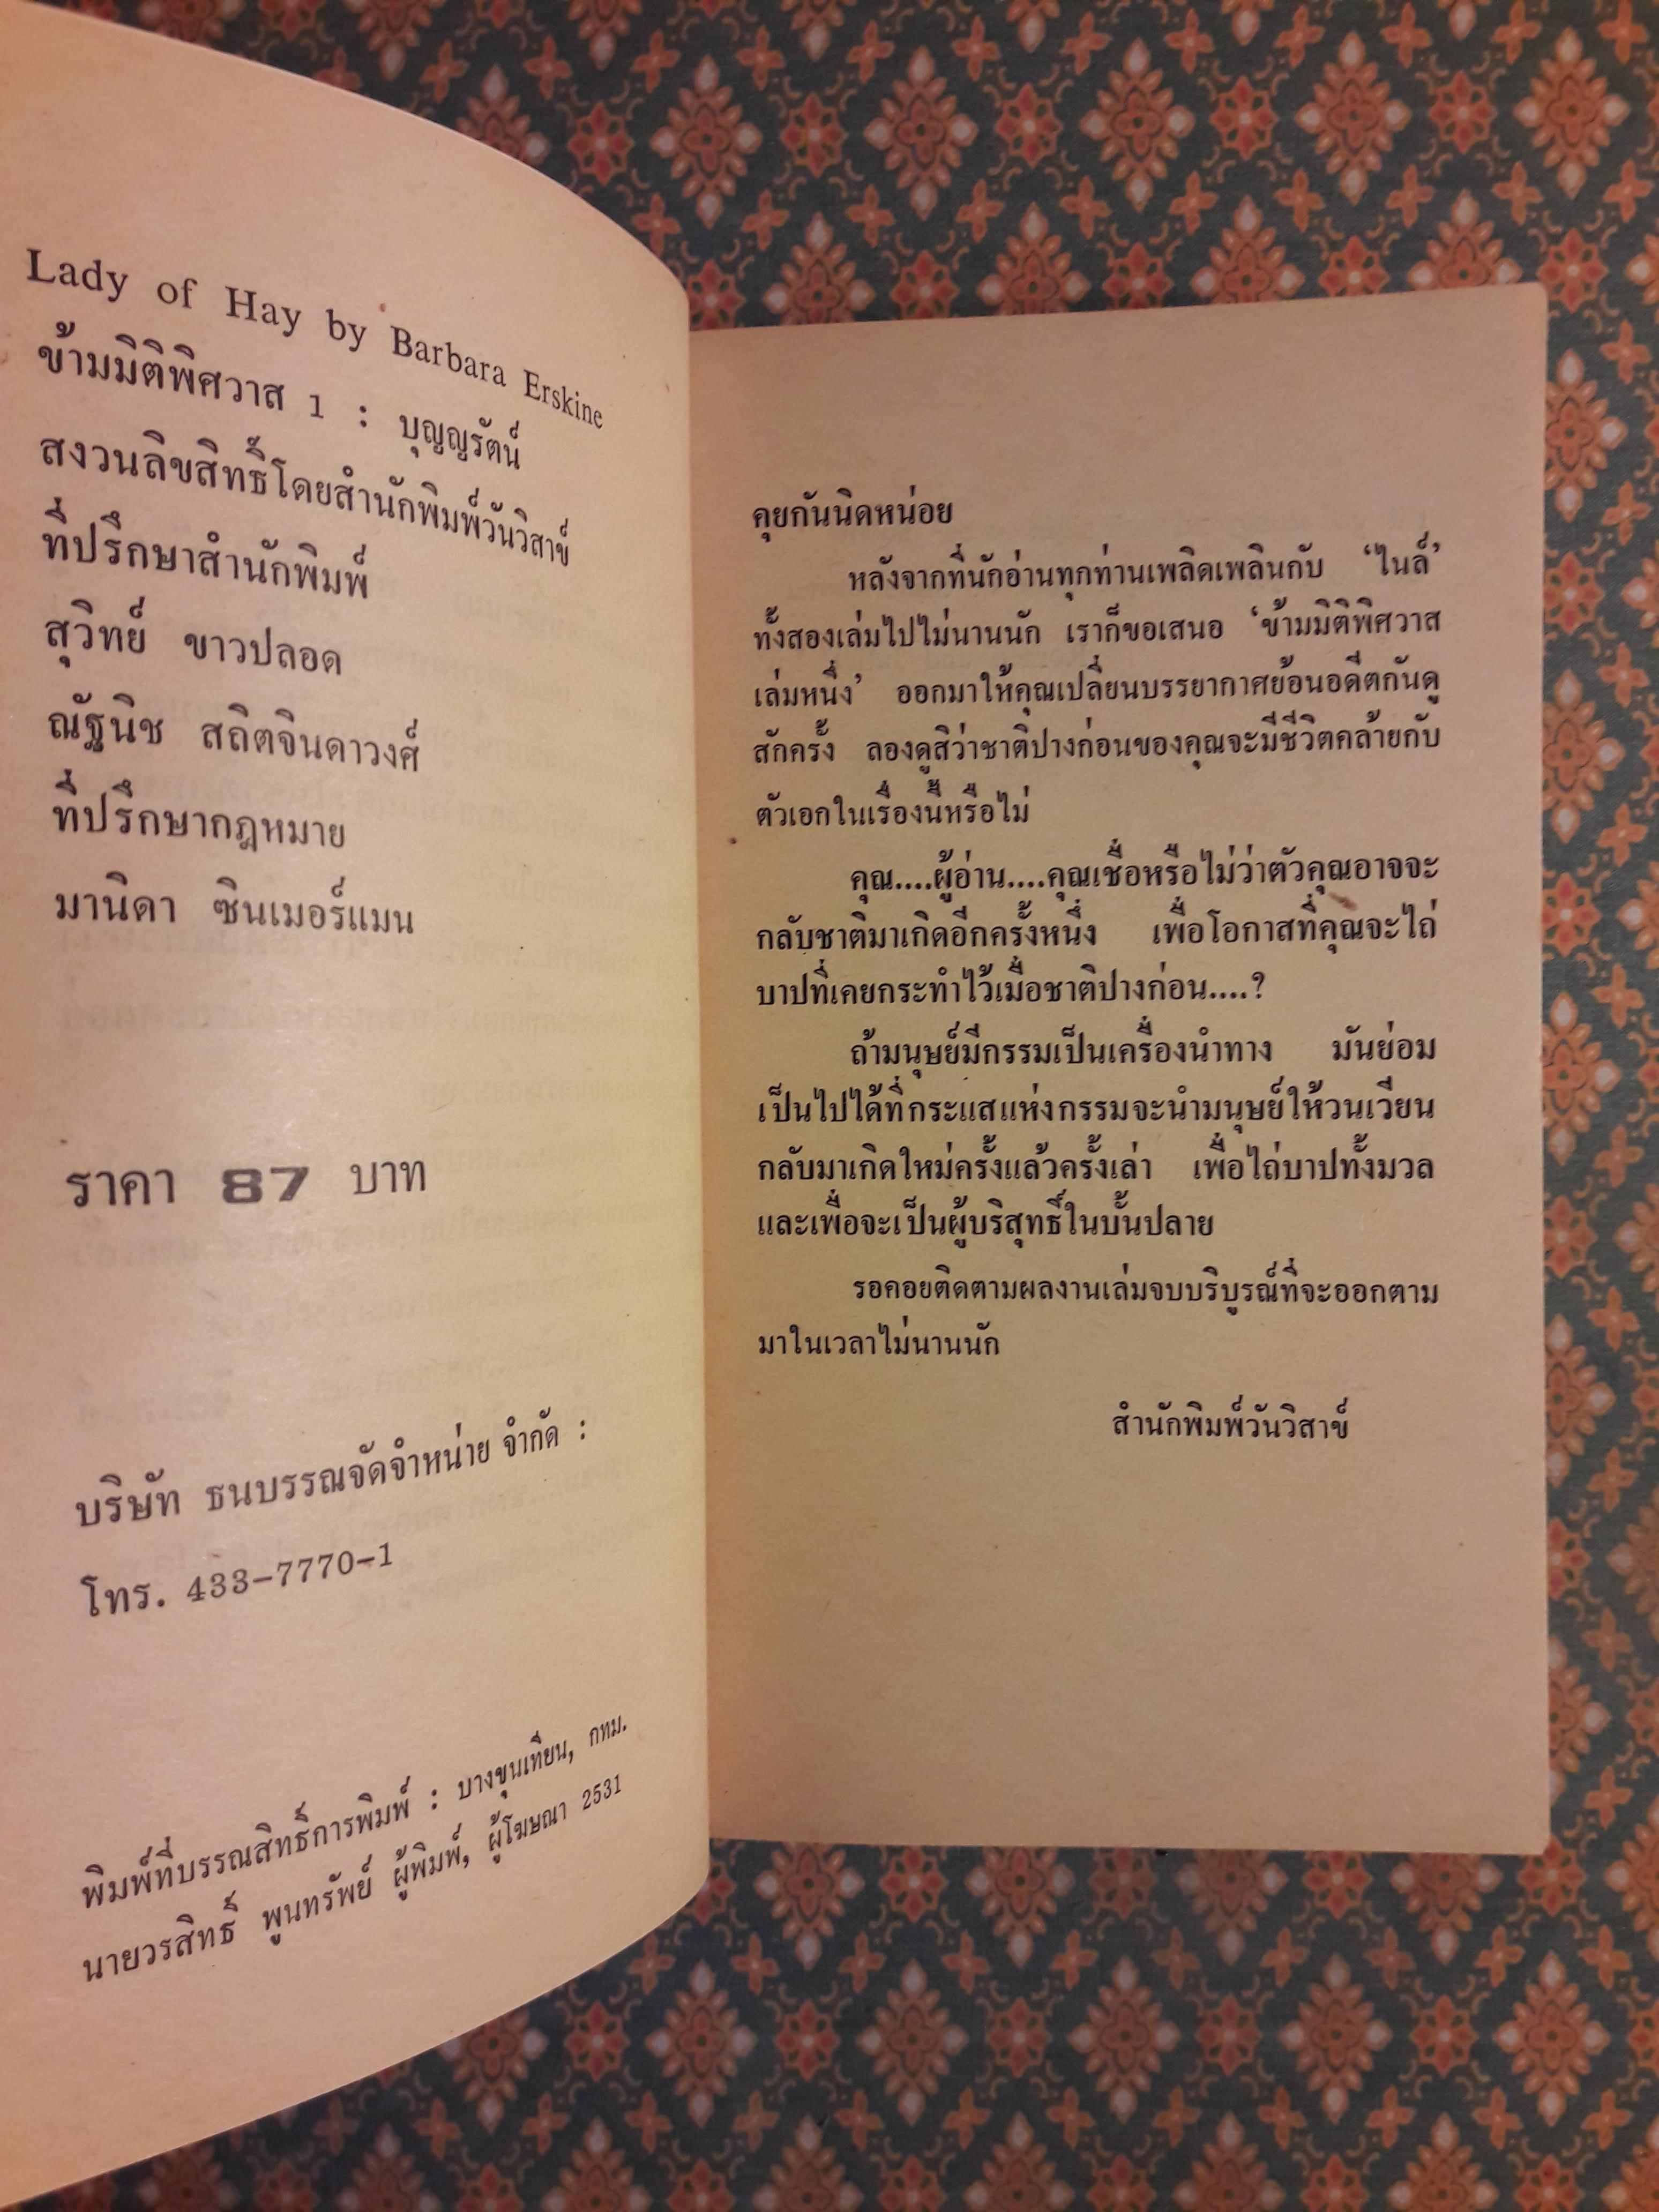 Lady of Hay by Barbara Erskine
ข้ามมิติพิศวาส 1 : บุญญรัตน์
สงวนลิขสิทธิ์โดยสำนักพิมพ์วันวิสาข์
ที่ปรึกษาสำนักพิมพ์
สุวิทย์ ขาวปลอด
ณัฐนิช สถิตจินดาวงศ์
ที่ปรึกษากฎหมาย
มานิดา ซินเมอร์แมน
ราคา 87 บาท
บริษัท ธนบรรณจัดจำหน่าย จำกัด :
โทร. 433-7770-1
พิมพ์ที่บรรณสิทธิ์การพิมพ์ : บางขุนเทียน, กทม.
นายวรสิทธิ์ พูนทรัพย์ ผู้พิมพ์, ผู้โฆษณา 2531
คุยกันนิดหน่อย
หลังจากที่นักอ่านทุกท่านเพลิดเพลินกับ ‘ไนล์’
ทั้งสองเล่มไปไม่นานนัก เราก็ขอเสนอ ‘ข้ามมิติพิศวาส
เล่มหนึ่ง’ ออกมาให้คุณเปลี่ยนบรรยากาศย้อนอดีตกันดู
สักครั้ง ลองดูสิว่าชาติปางก่อนของคุณจะมีชีวิตคล้ายกับ
ตัวเอกในเรื่องนี้หรือไม่
คุณ....ผู้อ่าน....คุณเชื่อหรือไม่ว่าตัวคุณอาจจะ
กลับชาติมาเกิดอีกครั้งหนึ่ง เพื่อโอกาสที่คุณจะไถ่
บาปที่เคยกระทำไว้เมื่อชาติปางก่อน....?
ถ้ามนุษย์มีกรรมเป็นเครื่องนำทาง มันย่อม
เป็นไปได้ที่กระแสแห่งกรรมจะนำมนุษย์ให้วนเวียน
กลับมาเกิดใหม่ครั้งแล้วครั้งเล่า เพื่อไถ่บาปทั้งมวล
และเพื่อจะเป็นผู้บริสุทธิ์ในบั้นปลาย
รอคอยติดตามผลงานเล่มจบบริบูรณ์ที่จะออกตาม
มาในเวลาไม่นานนัก
สำนักพิมพ์วันวิสาข์